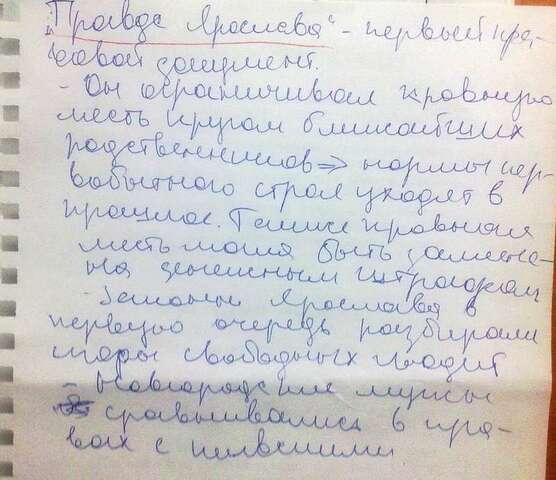 "Правда Ярослава" - первый пра-
вовой документ.
- Он ограничивал кровную
месть кругом ближайших
родственников => нормы пер-
вобытного строя уходят в
прошлое. Также кровная
месть могла быть замене-
на денежным штрафом
- Законы Ярослава в
первую очередь разбирали
споры свободных людей
- Новгородские мужы
сравнивались в пра-
вах с киевскими